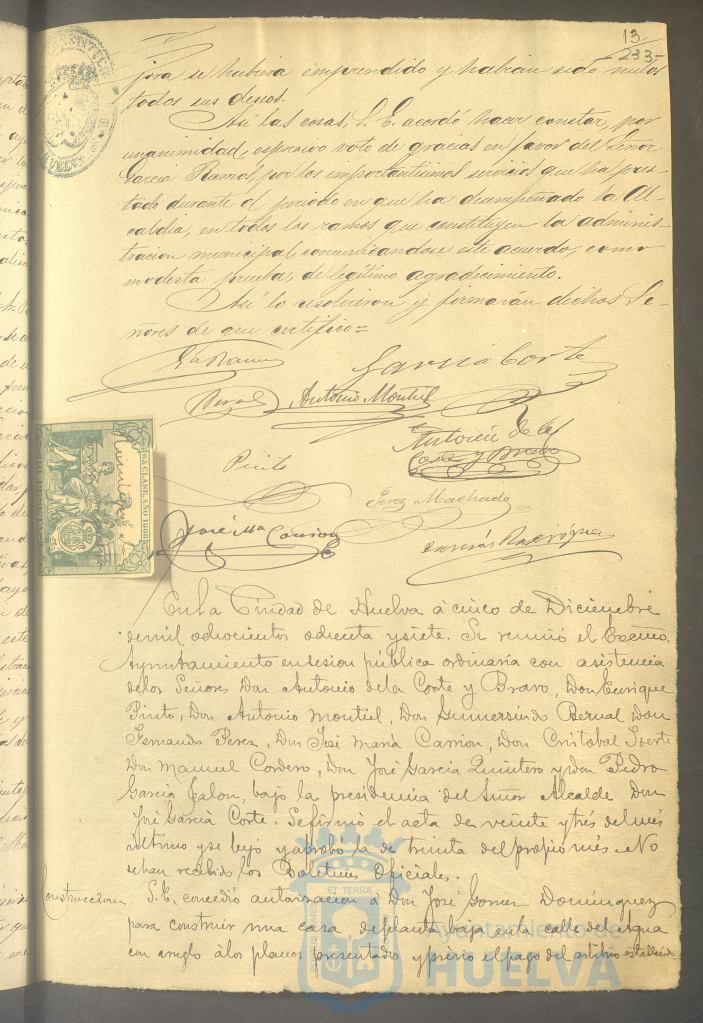 13
233
jora se hubiera emprendido y habian sido nulos
todos sus deseos.
Asi las cosas, S. E. acordó hacer constar, por
unanimidad, espresivo voto de gracias en favor del Señor
Garcia Ramos, por los importantisimos servicios que ha pres-
tado durante el periodo en que ha desempeñado la Al-
caldia, en todos los ramos que constituyen la adminis-
tracion municipal, este acuerdo, como
modesta prueba, de legitimo agradecimiento.
Asi lo resolvieron y firmarán dichos Se-
ñores de que certifico=
Garcia Corte
Bernal Antonio Montiel
Antonio de la
Corte y Bravo
Pinto
Perez Machado
José Ma Carrion
Rodriguez
En la Ciudad de Huelva á cinco de Diciembre
de mil ochocientos ochenta y siete. Se reunió el Excmo.
Ayuntamiento en sesion publica ordinaria con asistencia
de los Señores Don Antonio de la Corte y Bravo, Don Enrique
Pinto, Don Antonio Montiel, Don Gumersindo Bernal Don
Fernando Perez, Don José Maria Carrion, Don Cristobal
Don Manuel Cordero, Don José Garcia Quintero y Don Pedro
Garcia Jalon, bajo la presidencia del Señor Alcalde Don
José Garcia Corte. Se firmó el acta de veinte y tres del mes
ultimo y se leyó y aprobó la de treinta del propio mes. No
se han recibido los Boletines Oficiales.
Construccion S. E. concedió autorizacion á Don José Gomez Dominguez
para construir una casa de planta baja en la calle del Agua
con arreglo á los planos presentados y previo el pago del arbitrio establecido
Ayuntamiento de
HUELVA